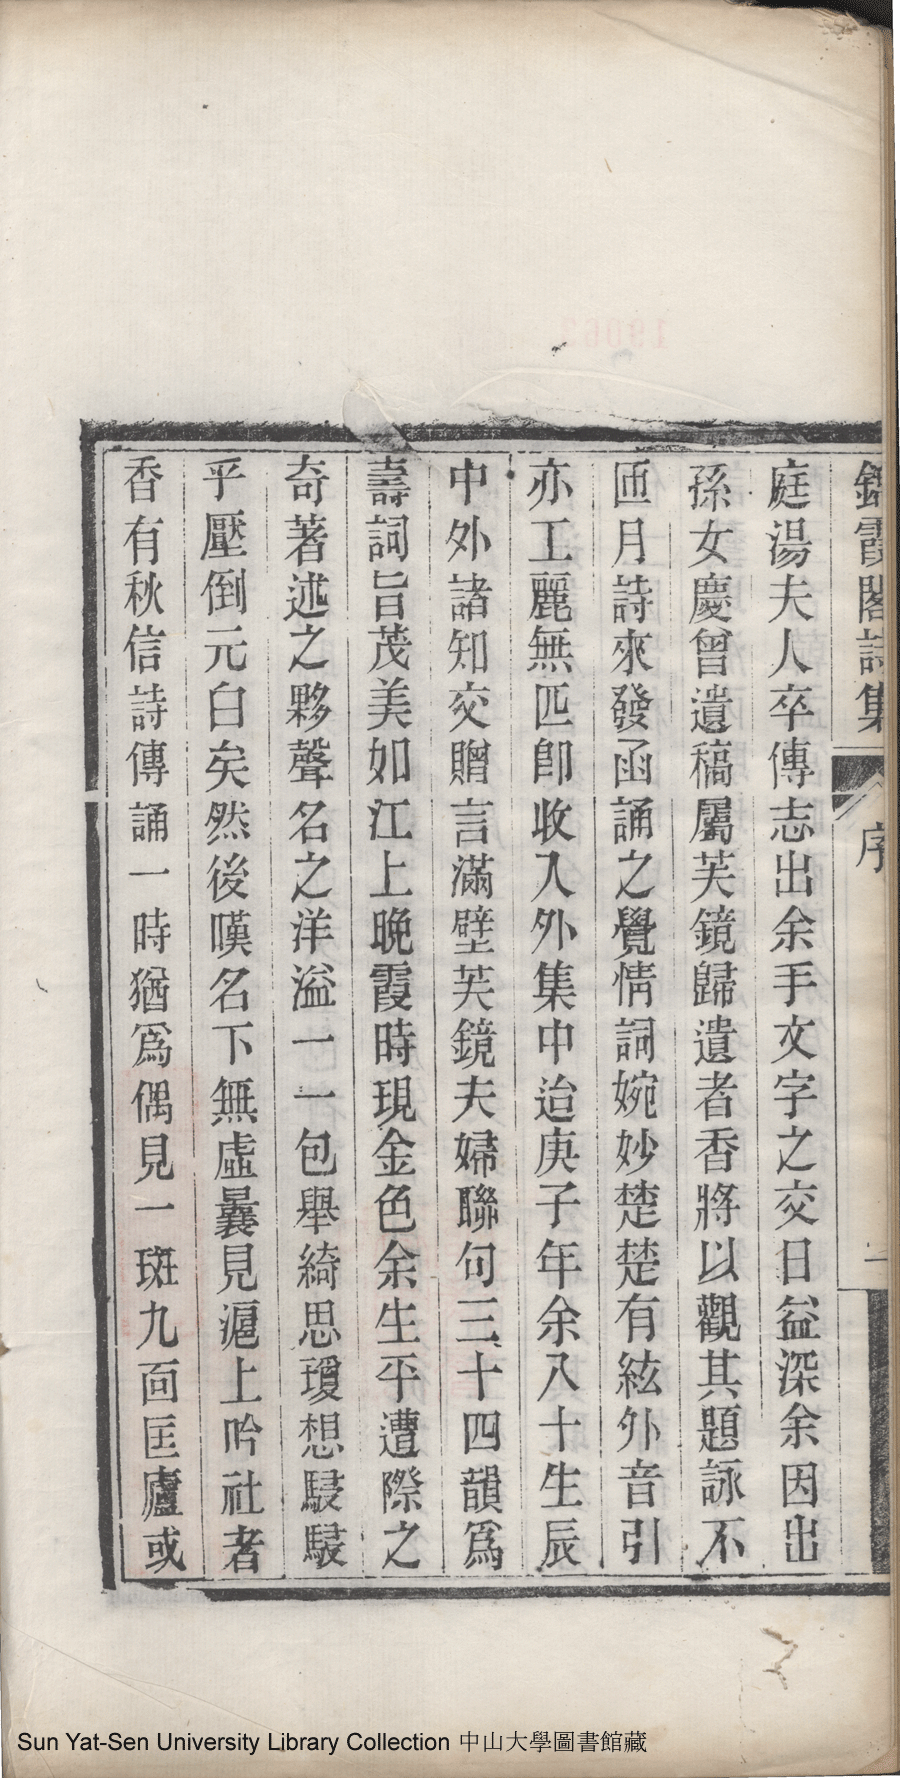 霞閣詩集
序
庭湯夫人卒傳志出余手文字之交日益深余因出
孫女慶曾遺稿屬芙鏡歸遺者香將以觀其題詠不
匝月詩來發函誦之覺情詞婉妙楚楚有絃外音引
亦工麗無匹卽收入外集中迨庚子年余八十生辰
中外諸知交贈言滿壁芙鏡夫婦聯句三十四韻爲
壽詞旨茂美如江上晚霞時現金色余生平遭際之
奇著述之夥聲名之洋溢一一包舉綺思瓊想駸駸
乎壓倒元白矣然後嘆名下無虛曩見滬上吟社者
香有秋信詩傳誦一時猶爲偶見一斑九面匡廬或
19063
Sun Yat-Sen University Library Collection 中山大學圖書館藏